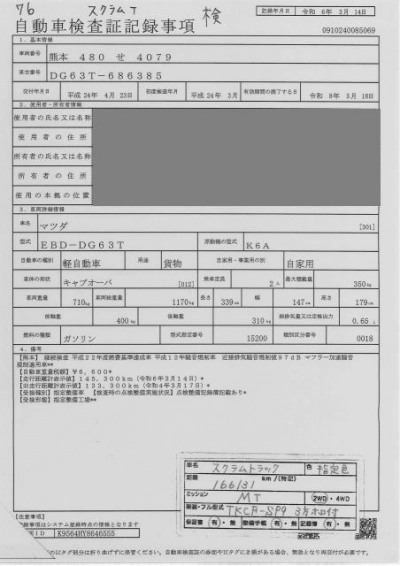 76 スクラムT 検
記録年月日 令和 6年 3月14日
自動車検査証記録事項
0910240085069
1. 基本情報
車両番号 熊本 480 せ 4079
車台番号 DG63T-686385
交付年月日 平成24年 4月23日 初度検査年月 平成24年 3月 有効期間の満了する日 令和 8年 3月18日
2. 使用者・所有者情報
使用者の氏名又は名称
使用者の住所
所有者の氏名又は名称
所有者の住所
使用の本拠の位置
3. 車両詳細情報
車名 マツダ [001]
型式 EBD-DG63T 原動機の型式 K6A
自動車の種別 軽自動車 用途 貨物 自家用・事業用の別 自家用
車体の形状 キャブオーバ [012] 乗車定員 2人 最大積載量 350kg
車両重量 710kg 車両総重量 1170kg 長さ 339cm 幅 147cm 高さ 179cm
400kg 310kg 総排気量又は定格出力 0.65L
燃料の種類 ガソリン 型式指定番号 15200 類別区分番号 0018
4. 備考
【熊本】 継続検査 平成22年度燃費基準達成車 平成12年騒音規制車 近接排気騒音規制値97dB マフラー加速騒音
規制適用車**
【自動車重量税額】¥6,600*
【走行距離計表示値】145,300km(令和6年3月14日)*
【旧走行距離計表示値】123,300km(令和4年3月17日)*
【受検種別】指定整備車 【検査時の点検整備実施状況】点検整備記録簿記載あり*
【受検形態】指定整備工場**
車名 スクラムトラック 色 指定色
距離 166131 km/(特記)
ミッション MT 2WD・4WD
類別・フル型式 TKCR-SP9 3方開付
保証書 有・無 整備手帳 有・無 記録簿 有・無
【注意事項】
K9564HY8646555